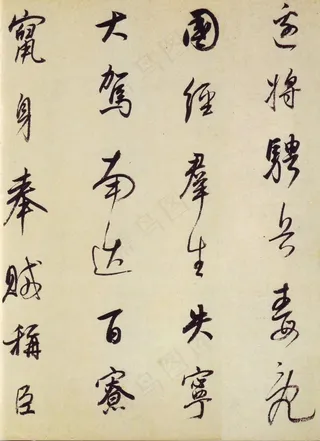 邊將騁兵毒亂
國經羣生失寧
大駕南巡百寮
竄身奉賊稱臣